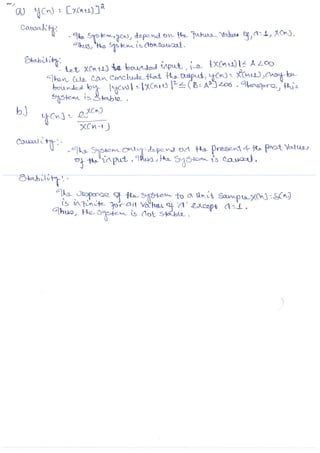 a) y(n) = [x(n+1)]²
Causality:
- The system, y(n), depend on the future value of, n=1, x(n).
Thus, the system is noncausal.
Stability:
Let x(n+1) be bounded input, i.e |x(n+1)| ≤ A < ∞
Then we can conclude that the output, y(n) = x²(n+1), may be
bounded by |y(n)| = |x(n+1)|² ≤ (B = A²) < ∞. Therefore, this
system is stable.
b.) y(n) = e^x(n) / x(n-1)
Causality:-
- The system only depend on the present & the past values
of the input. Thus, the system is causal.
Stability:-
The response of the system to a unit sample x(n) = δ(n)
is infinite for all values of 'n' except n = 1.
Thus, the system is not stable.